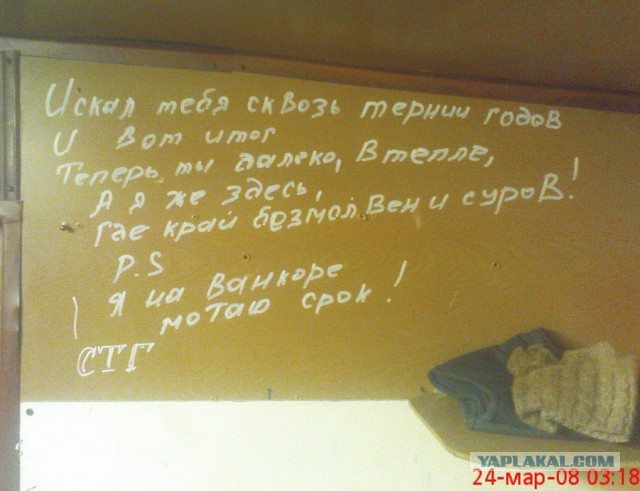 Искал тебя сквозь тернии годов
И вот итог
Теперь ты далеко, в тепле,
А я же здесь,
Где край безмолвен и суров!
P.S
Я на Ванкоре
мотаю срок!
СТГ
YAPLAKAL.COM
24-мар-08 03:18